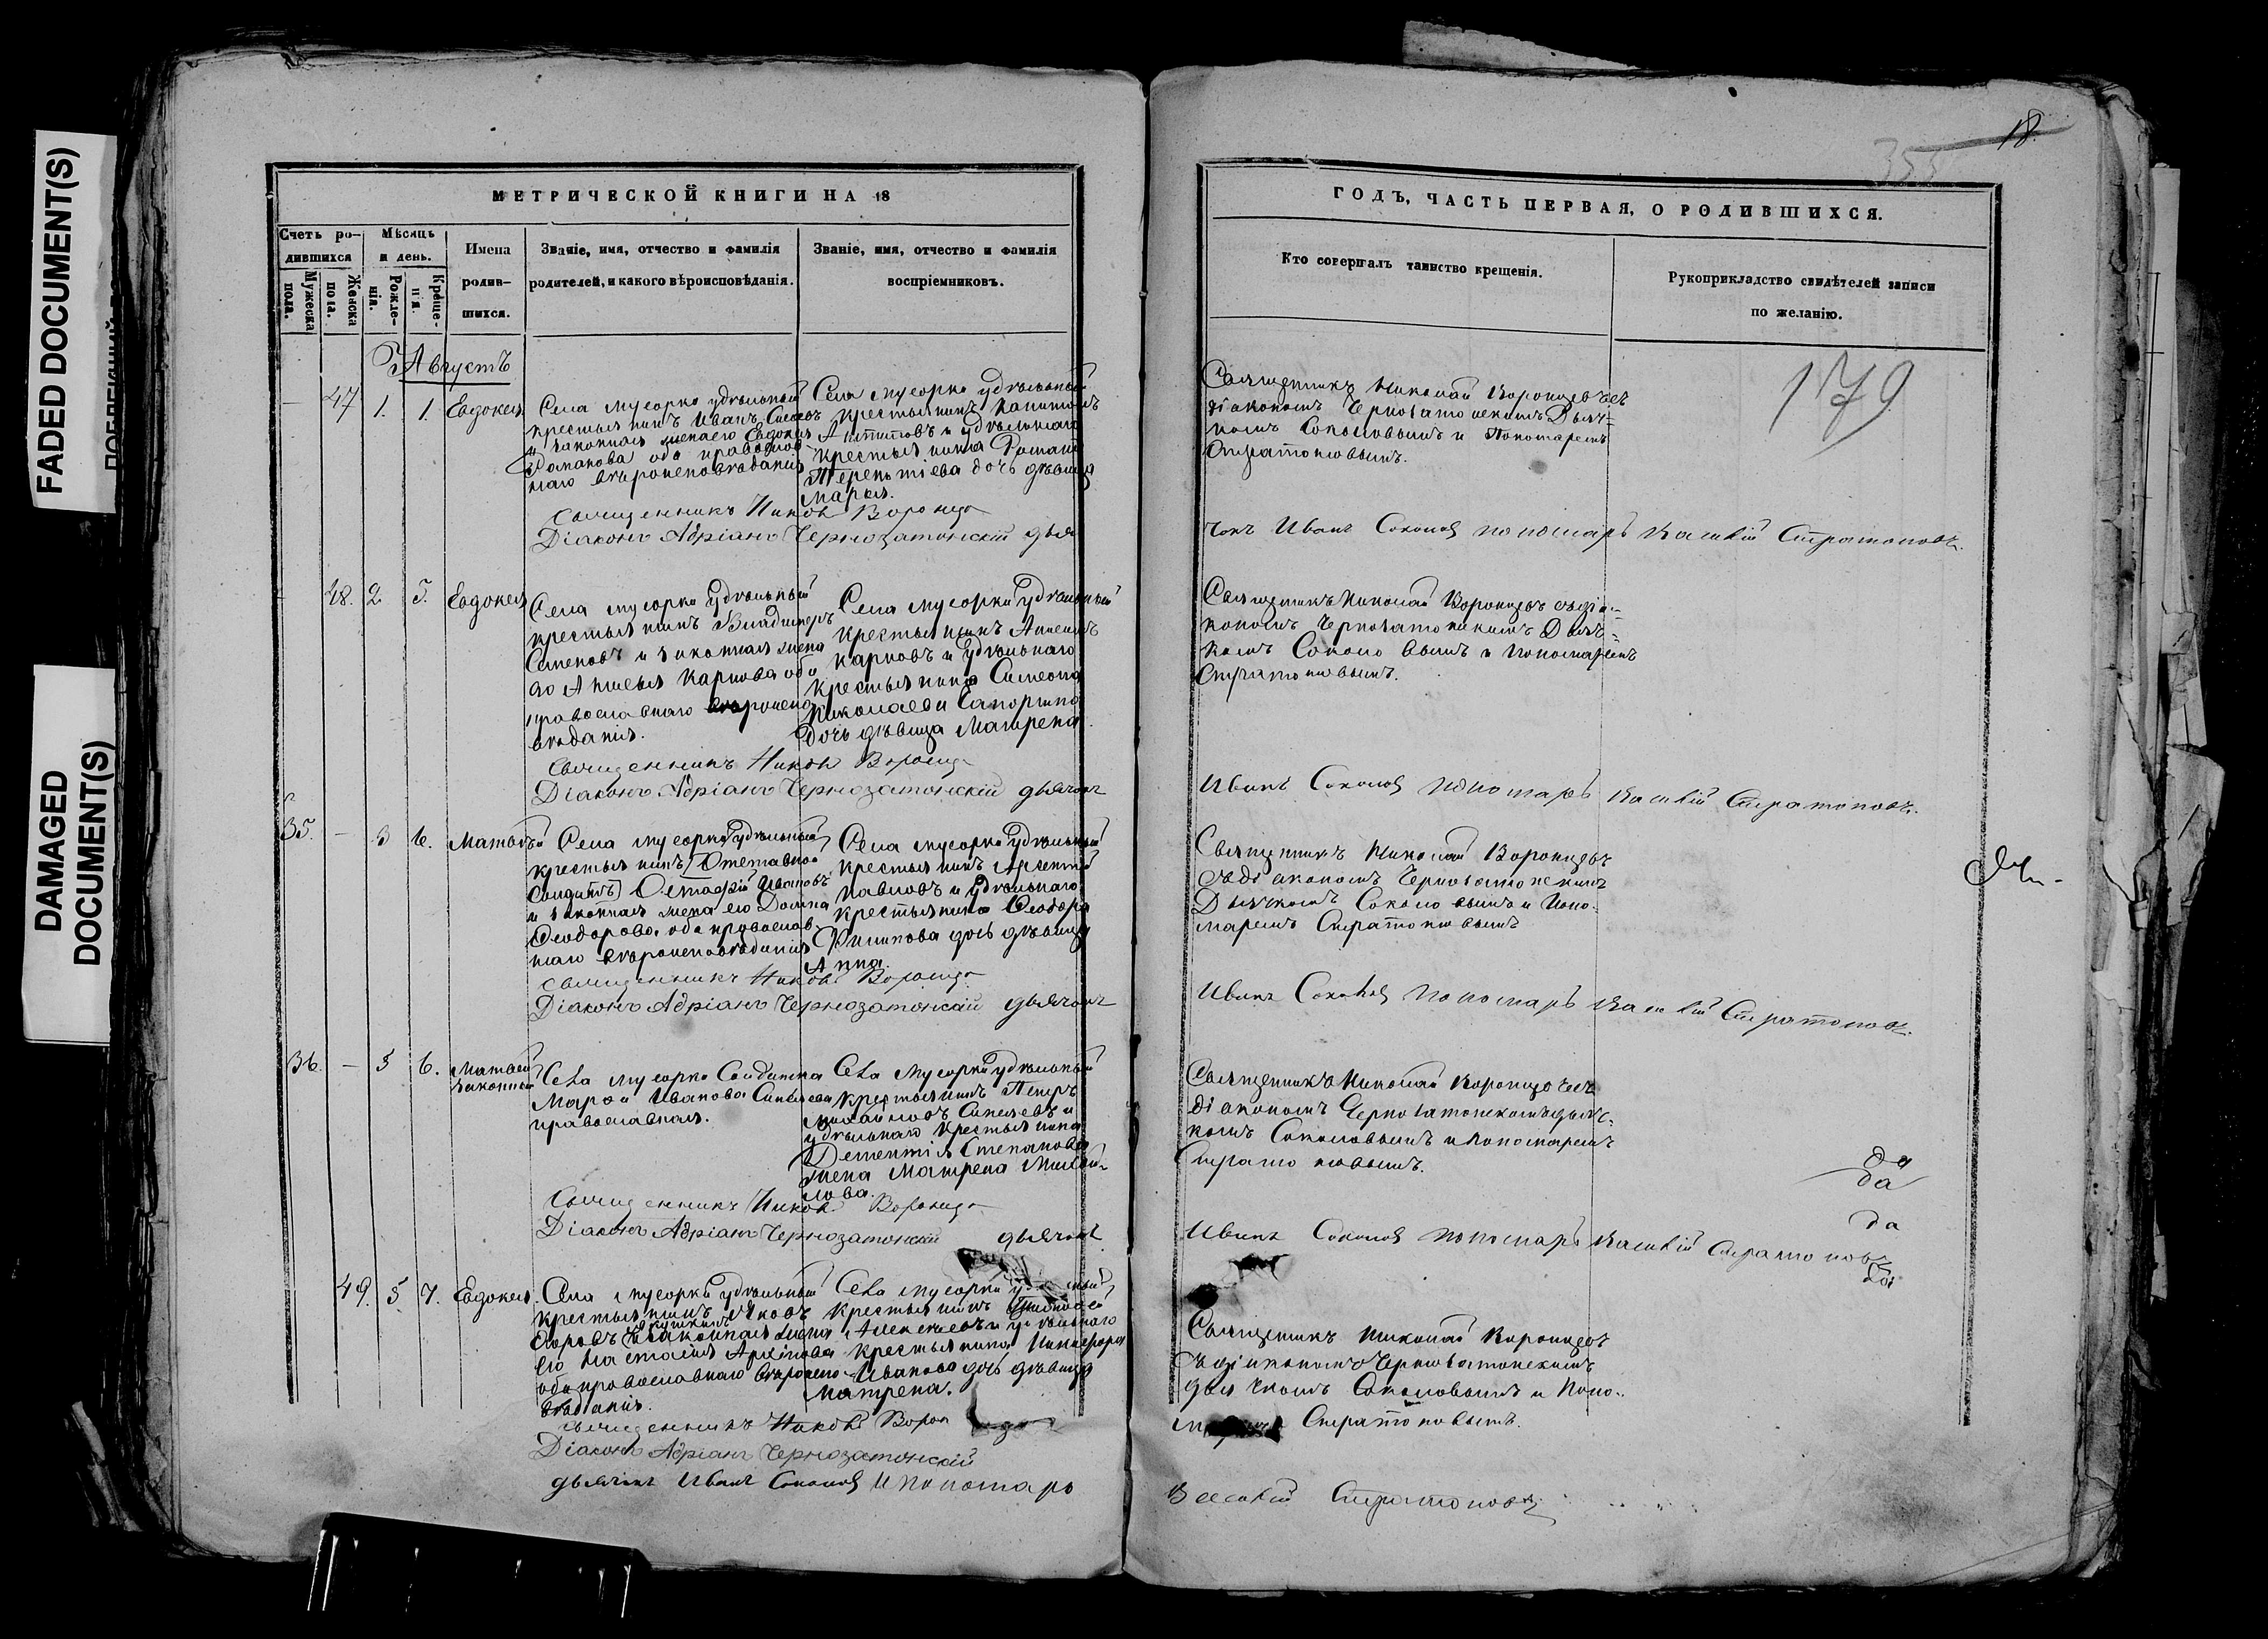 FADED DOCUMENT(S)
DAMAGED
DOCUMENT(S)
18
355
МЕТРИЧЕСКОЙ КНИГИ НА 18
Счетъ ро-
дившихся
Мужеска
пола.
Женска
пола.
Мѣсяцъ
и день.
Рожде-
нія.
Креще-
нія.
Имена
родив-
шихся.
Званіе, имя, отчество и фамилія
родителей, и какого вѣроисповѣданія.
Званіе, имя, отчество и фамилія
воспріемниковъ.
Августъ
47 1. 1. Евдокея
Села Мусорки удѣльный
крестьянинъ Иванъ
и законная жена его Евдокея
Романова оба православ
наго вѣроисповѣданія
Села Мусорки удѣльный
крестьянинъ Капитонъ
Антиповъ и удѣльнаго
крестьянина Романа
Терентіева дочь дѣвица
Марья.
Священникъ Никол Воронцо
Діаконъ Адріанъ Чернозатонскій дья
48. 2. 5. Евдокея
Села Мусорки удѣльный
крестьянинъ Владимеръ
Семеновъ и законная жена
его Аксинья Карпова оба
православнаго вѣроиспо
вѣданія.
Села Мусорки удѣльный
крестьянинъ
Карповъ и удѣльнаго
крестьянина Симеона
Николаева
дочь дѣвица Матрена.
Священникъ Никол Воронцо
Діаконъ Адріанъ Чернозатонскій дьячокъ
35. — 3 6. Матвѣй
Села Мусорки удѣльный
крестьянинъ (Отставной
Солдатъ) Остафій Ивановъ
и законная жена его Домна
Феодорова оба православ
наго вѣроисповѣданія
Села Мусорки удѣльный
крестьянинъ Арсентій
Павловъ и удѣльнаго
крестьянина Феодора
Филипова дочь дѣвица
Анна.
Священникъ Никол Воронцо
Діаконъ Адріанъ Чернозатонскій дьячокъ
36. — 5 6. Матвей
незаконный
Села Мусорки Солдатка
Марфа Иванова
православная.
Села Мусорки удѣльный
крестьянинъ Петръ
Михайловъ и
удѣльнаго крестьянина
Дементія Степанова
жена Матрена Михай-
лова.
Священникъ Никол Воронцо
Діаконъ Адріанъ Чернозатонскій дьячокъ
49. 5. 7. Евдокея.
Села Мусорки удѣльный
крестьянинъ Яковъ
и законная жена
его Настасія Архипова
оба православнаго вѣроиспо
вѣданія.
Села Мусорки
крестьянинъ
Алексѣевъ и удѣльнаго
крестьянина Никифора
Иванова дочь дѣвица
Матрена.
Священникъ Никол Ворон
Діаконъ Адріанъ Чернозатонскій
дьячокъ Иванъ Соколов и пономарь
ГОДЪ, ЧАСТЬ ПЕРВАЯ, О РОДИВШИХСЯ.
Кто совершалъ таинство крещенія.
Рукоприкладство свидѣтелей записи
по желанію.
179
Священникъ Николай Воронцовъ съ
діакономъ Чернозатонскимъ Дьяч-
комъ Соколовымъ и Пономаремъ
Стратоновымъ.
чокъ Иванъ Соколов пономарь Василій Стратоновъ.
Священникъ Николай Воронцовъ съ діа-
кономъ Чернозатонскимъ Дьяч-
комъ Соколовымъ и Пономаремъ
Стратоновымъ.
Иванъ Соколов пономарь Василій Стратоновъ.
Священникъ Николай Воронцовъ
съ діакономъ Чернозатонскимъ
Дьячкомъ Соколовымъ и Поно-
маремъ Стратоновымъ
Иванъ Соколов пономарь Василій Стратоновъ.
Священникъ Николай Воронцовъ съ
діакономъ Чернозатонскимъ дьяч-
комъ Соколовымъ и Пономаремъ
Стратоновымъ.
да
да
да
Иванъ Соколов пономарь Василій Стратоновъ
Священникъ Николай Воронцовъ
съ діакономъ Чернозатонскимъ
дьячкомъ Соколовымъ и Поно-
Стратоновымъ.
Василій Стратоновъ